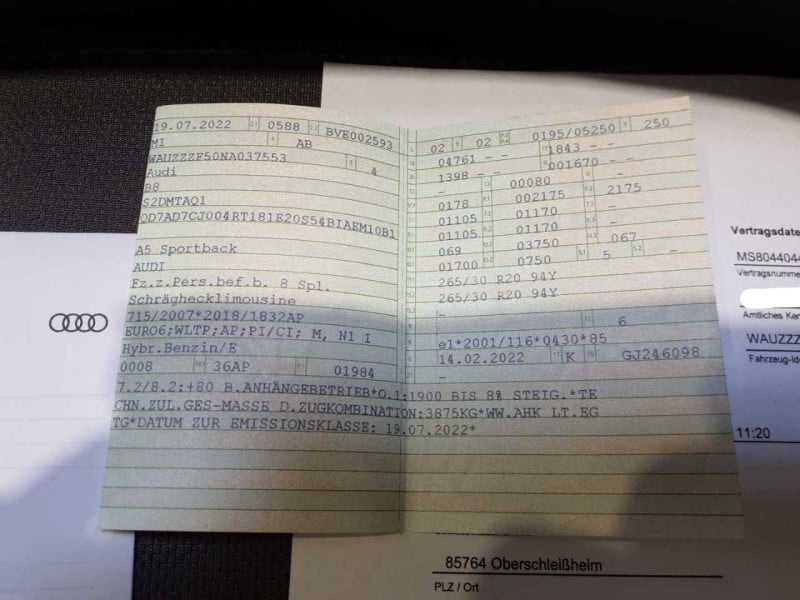 19.07.2022 0588 BVE002593
M1 AB
WAUZZZF50NA037553 4
Audi
B8
S2DMTAQ1
QD7AD7CJ004RT181E20S54BIAEM10B1
A5 Sportback
AUDI
Fz.z.Pers.bef.b. 8 Spl.
Schräghecklimousine
715/2007*2018/1832AP
EURO6;WLTP;AP;PI/CI; M, N1 I
Hybr.Benzin/E
0008 36AP 01984
02 02 0195/05250 250
04761 - - 1843 - -
1398 - - 001670 - -
- 00080 -
0178 002175 2175
01105 01170 -
01105 01170 -
069 03750 067
01700 0750 5 -
265/30 R20 94Y
265/30 R20 94Y
-
- 6
e1*2001/116*0430*85
14.02.2022 K GJ246098
-
7.2/8.2:+80 B.ANHÄNGEBETRIEB*O.1:1900 BIS 8% STEIG.*TE
CHN.ZUL.GES-MASSE D.ZUGKOMBINATION:3875KG*WW.AHK LT.EG
TG*DATUM ZUR EMISSIONSKLASSE: 19.07.2022*
Vertragsdate
MS8044044
Vertragsnumme
Amtliches Ken
WAUZZZ
Fahrzeug-Ide
11:20
85764 Oberschleißheim
PLZ / Ort